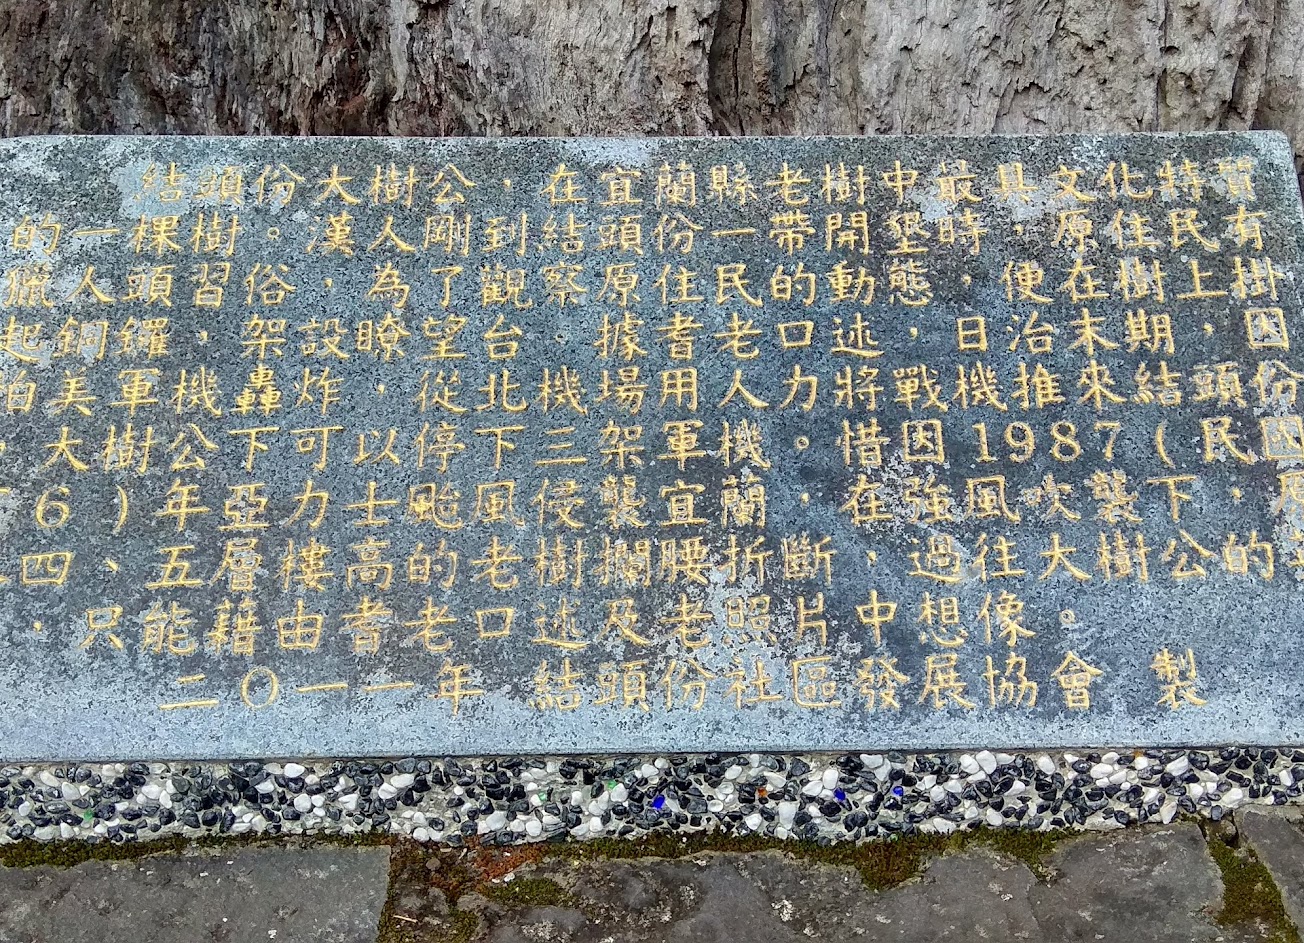 結頭份大樹公，在宜蘭縣老樹中最具文化特質
的一棵樹。漢人剛到結頭份一帶開墾時，原住民有
獵人頭習俗，為了觀察原住民的動態，便在樹上掛
起銅鑼，架設瞭望台。據耆老口述，日治末期，因
怕美軍機轟炸，從北機場用人力將戰機推來結頭份
，大樹公下可以停下三架軍機。惜因1987(民國
6)年亞力士颱風侵襲宜蘭，在強風吹襲下，原
四、五層樓高的老樹攔腰折斷，過往大樹公的
，只能藉由耆老口述及老照片中想像。
二〇一一年 結頭份社區發展協會 製